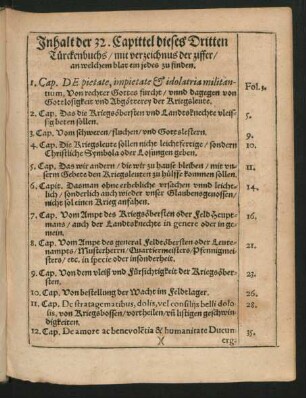 Inhalt der 32. Capittel dieses Dritten
Türckenbuchs / mit verzeichnus der ziffer /
an welchem blat ein jedes zu finden.
1. Cap. DE pietate, impietate & idolatria militan-
tium, Von rechter Gottes furcht / vnnd dagegen von
Gottlosigkeit vnd Abgötterey der Kriegsleute. Fol. 1.
2. Cap. Das die Kriegsöbersten vnd Landsknechte vleis-
sig beten sollen. 5.
3. Cap. Vom schweren / fluchen / vnd Gottslestern. 9.
4. Cap. Die Kriegsleute sollen nicht leichtfertige / sondern
Christliche Symbola oder Losungen geben. 10.
5. Cap. Das wir andern / die wir zu hause bleiben / mit vn-
serm Gebete den Kriegsleuten zu hülffe kommen sollen. 11.
6. Capit. Das man ohne erhebliche vrsachen vnnd leicht-
lich / sonderlich auch wieder vnser Glaubensgenossen /
nicht sol einen Krieg anfahen. 14.
7. Cap. Vom Ampt des Kriegsöbersten oder Feld Heupt-
mans / auch der Landsknechte in genere oder in ge-
mein. 16.
8. Cap. Vom Ampte des general Feldöbersten oder Leute-
nampts / Musterherrn / Quartiermeisters / Pfennigmei-
sters / etc. in specie oder insonderheit. 21.
9. Cap. Von dem vleiß vnd Fürsichtigkeit der Kriegsöber-
sten. 23.
10. Cap. Von bestellung der Wacht im Feldtlager. 26.
11. Cap. De stratagematibus, dolis, vel consilijs belli dolo-
sis, von Kriegsbossen / vortheilen / vñ listigen geschwin-
digkeiten. 28.
12. Cap. De amore ac benevolẽtia & humanitate Ducum 35.
erg: